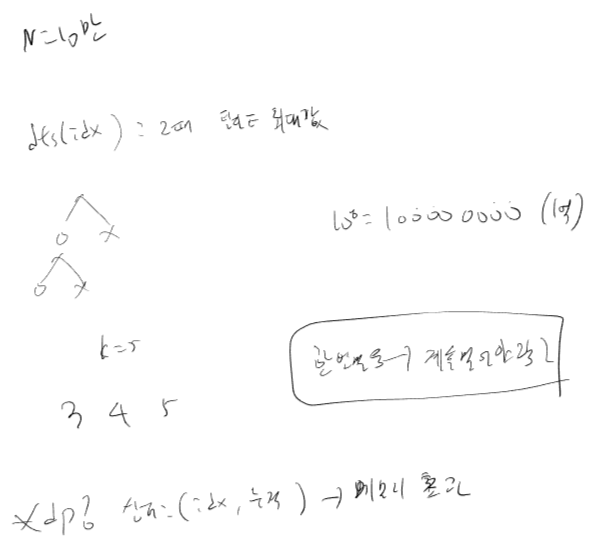 N=10만
dfs(idx) : 그때 탄도 최대값
O X
O X
10⁸ = 100000000 (1억)
k=5
한번먹음 → 계속먹어야함
3 4 5
*dp? 상태:(idx, 누적) → 메모리 초과